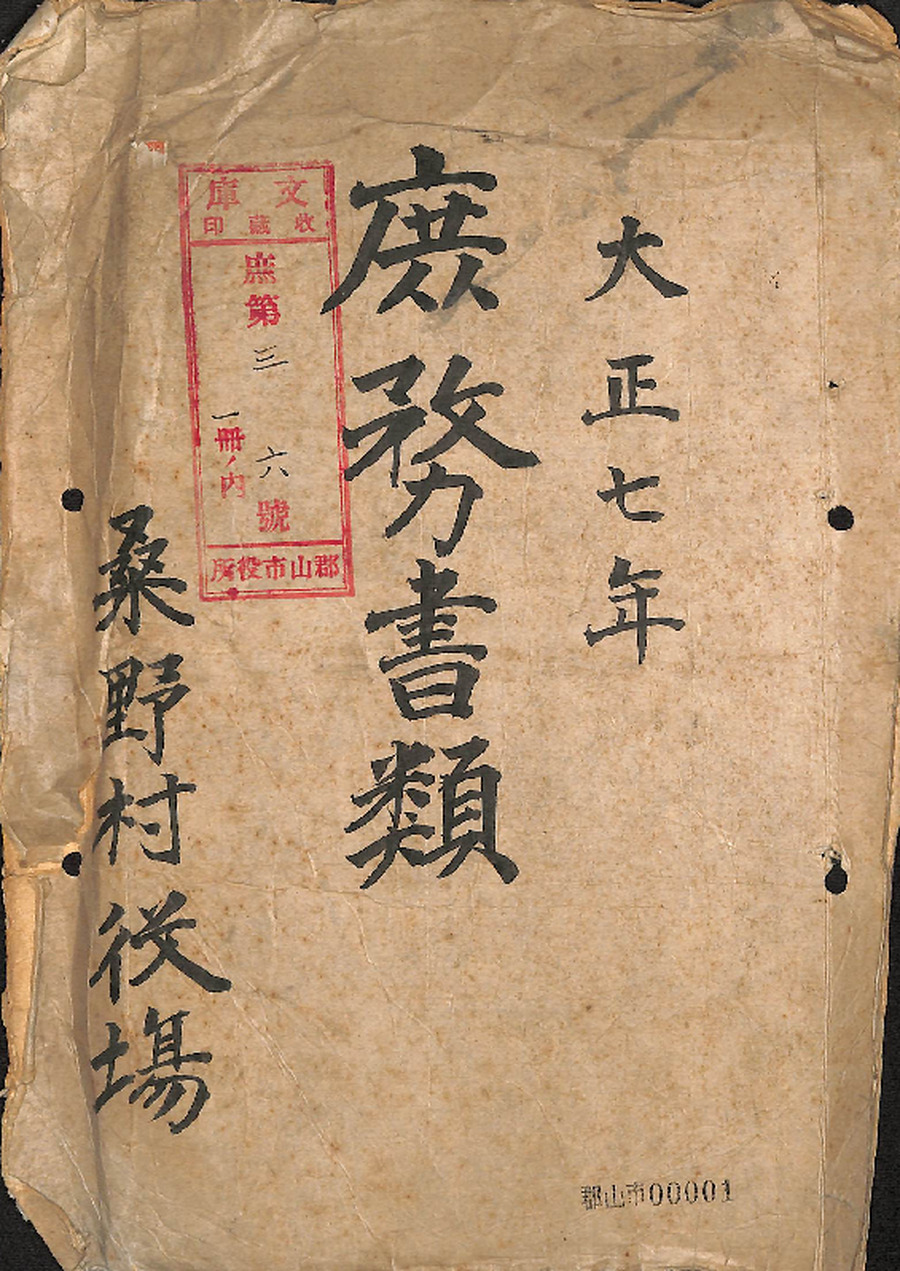 大正七年
庶務書類
文庫
收藏印
庶第三六號
一冊ノ内
郡山市役所
桑野村役場
郡山市00001